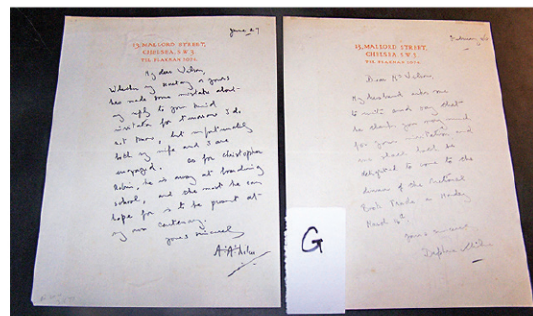 June 27
13, MALLORD STREET,
CHELSEA, S.W.3.
TEL. FLAXMAN 2074.
My dear Wilson,
Whether my Secretary or yours
has made some mistake about
my reply to your kind
invitation for tomorrow I do
not know, but unfortunately
both my wife and I are
engaged. As for Christopher
Robin, he is away at boarding
school, and the most he can
hope for is to be present at
my own centenary.
Yours sincerely
A. A. Milne
February
13, MALLORD STREET,
CHELSEA, S.W.3.
TEL. FLAXMAN 2074.
Dear Mr Wilson,
My husband asks me
to write and say that
he thanks you very much
for your invitation and
we shall both be
delighted to come to the
dinner of the Pictorial
Book Trade on Monday
March
Yours sincerely
Daphne Milne
G